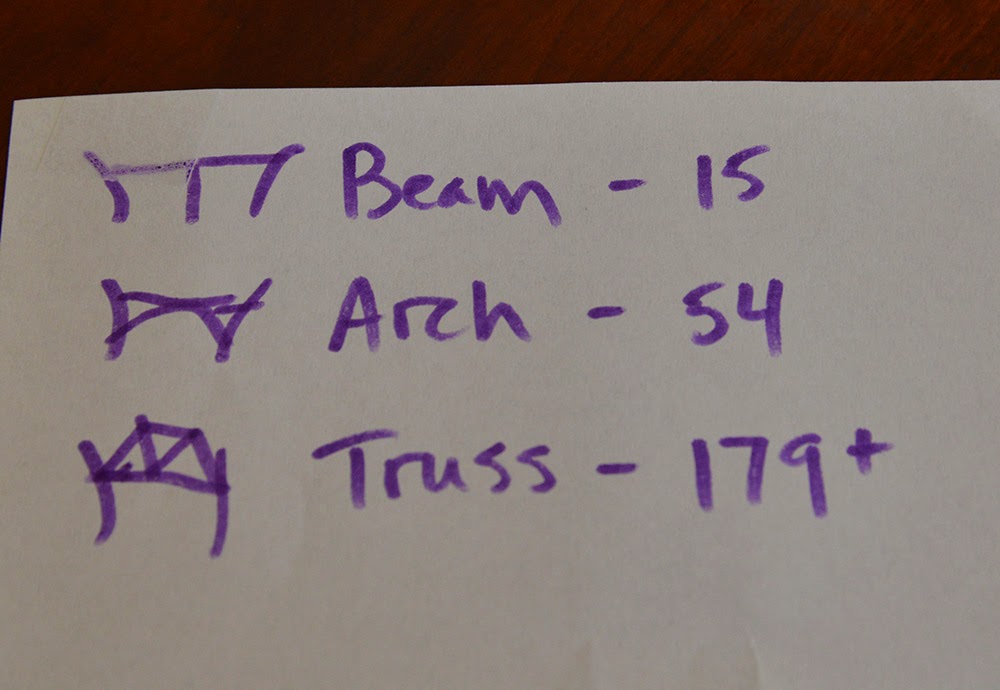 Beam - 15
Arch - 54
Truss - 179+